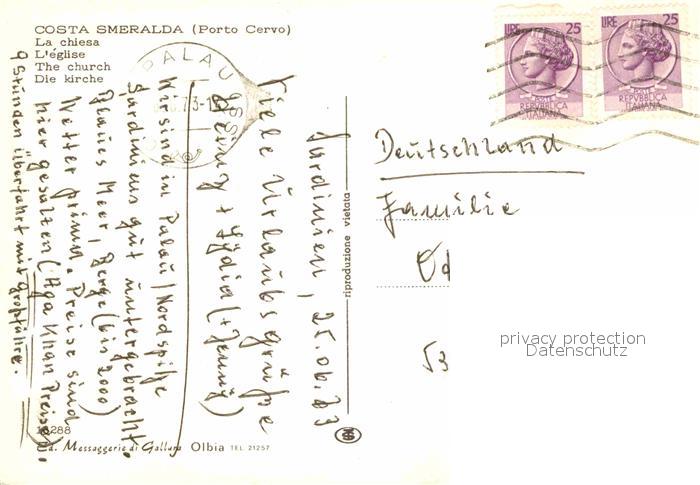 COSTA SMERALDA (Porto Cervo)
La chiesa
L'église
The church
Die kirche
PALAU
LIRE 25
POSTE
REPVBBLICA
ITALIANA
LIRE 25
POSTE
REPVBBLICA
ITALIANA
Sardinien, 25.06.73
Viele Urlaubsgrüße
Heinz + Lydia (+ Jenny)
Wir sind in Palau/Nordspitze
Sardiniens gut untergebracht.
Blaues Meer, Berge (bis 2000)
Wetter prima. Preise sind
hier gesalzen (Aga Khan Preise).
9 Stunden Überfahrt mit Großfähre.
riproduzione vietata
Deutschland
Familie
Od
53
privacy protection
Datenschutz
288
Ed. Messaggerie di Gallura Olbia TEL. 21257